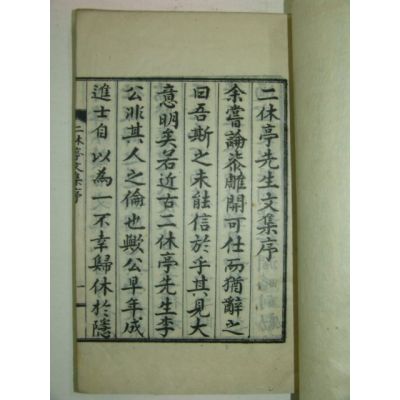 二休亭先生文集序
余嘗論柒雕開可仕而猶辭之
曰吾斯之未能信於乎其見大
意明矣若近古二休亭先生李
公非其人之倫也歟公早年成
進士自以為一不幸歸休於隱
二休亭文集序 一